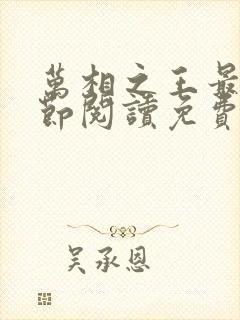 萬相之王最
節閱讀免費
吳承恩